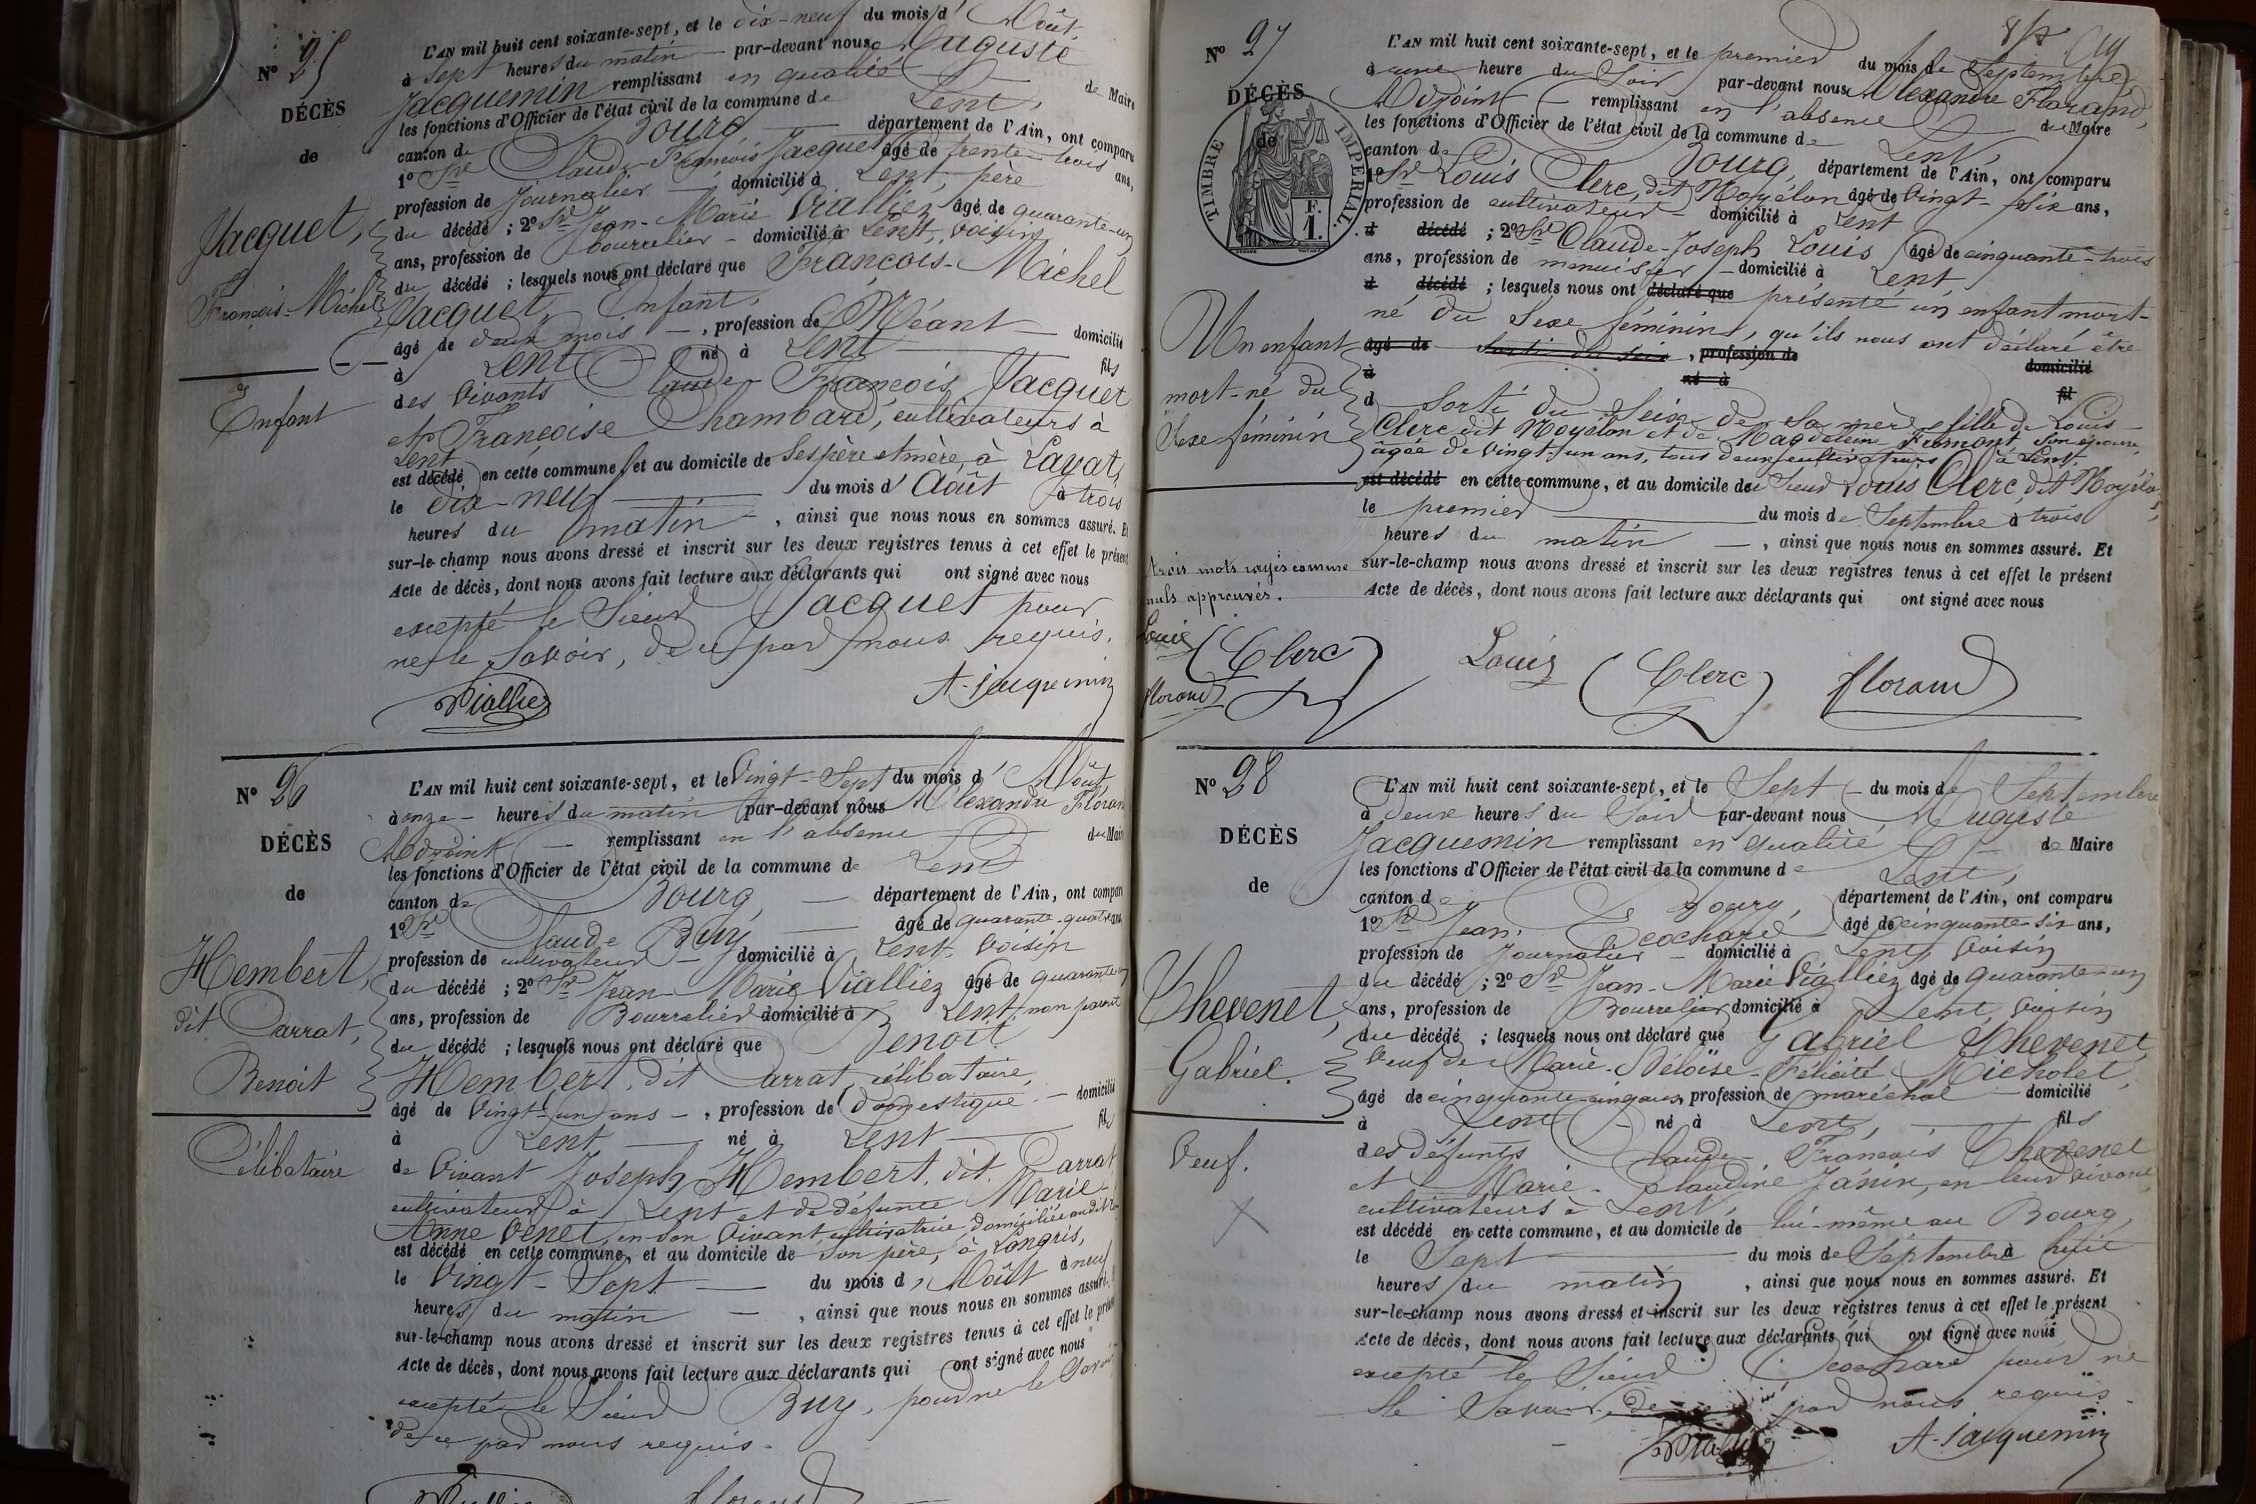 N° 25
DÉCÈS
de
Jacquet,
François-Michel
Enfant
L'AN mil huit cent soixante-sept, et le dix-neuf du mois d'Août,
à sept heures du matin par-devant nous Auguste
Jacquemin remplissant en qualité de Maire
les fonctions d'Officier de l'état civil de la commune de Lent,
canton de Bourg, département de l'Ain, ont comparu
1° Sr Claude-François Jacquet âgé de trente-trois ans,
profession de Journalier domicilié à Lent, père
du décédé ; 2° Sr Jean-Marie Vialliez âgé de quarante-un
ans, profession de bourrelier domicilié à Lent, voisin
du décédé ; lesquels nous ont déclaré que François-Michel
Jacquet, Enfant,
âgé de deux mois, profession de Néant domicilié
à Lent né à Lent fils
des vivants Claude-François Jacquet
et Françoise Chambard, cultivateurs à
Lent
est décédé en cette commune, et au domicile de ses père et mère, à Layat,
le dix-neuf du mois d'Août à trois
heures du matin, ainsi que nous nous en sommes assuré. Et
sur-le-champ nous avons dressé et inscrit sur les deux registres tenus à cet effet le présent
Acte de décès, dont nous avons fait lecture aux déclarants qui ont signé avec nous
excepté le Sieur Jacquet pour
ne le savoir, de ce par nous requis.
Vialliez A. Jacquemin
N° 26
DÉCÈS
de
Hembert,
dit Carrat,
Benoit
Célibataire
L'AN mil huit cent soixante-sept, et le Vingt-Sept du mois d'Août
à onze heures du matin par-devant nous Alexandre Floran
Adjoint remplissant en l'absence du Maire
les fonctions d'Officier de l'état civil de la commune de Lent
canton de Bourg, département de l'Ain, ont comparu
1° Sr Claude Buy âgé de quarante-quatre ans
profession de cultivateur domicilié à Lent, voisin
du décédé ; 2° Sr Jean-Marie Vialliez âgé de quarante-un
ans, profession de Bourrelier domicilié à Lent, non parent
du décédé ; lesquels nous ont déclaré que Benoit
Hembert, dit Carrat, célibataire,
âgé de Vingt-un ans, profession de domestique domicilié
à Lent né à Lent fils
de vivant Joseph Hembert, dit Carrat
cultivateur à Lent et de défunte Marie-
Anne Venet, en son vivant cultivatrice, domiciliée audit
est décédé en cette commune, et au domicile de son père, à Longris,
le Vingt-Sept du mois d'Août à neuf
heures du matin, ainsi que nous nous en sommes assuré.
sur-le-champ nous avons dressé et inscrit sur les deux registres tenus à cet effet le présent
Acte de décès, dont nous avons fait lecture aux déclarants qui ont signé avec nous
excepté le Sieur Buy, pour ne le savoir
de ce par nous requis.
8/7
N° 27
DÉCÈS
de
TIMBRE IMPÉRIAL.
F.
1.
Un enfant
mort-né du
Sexe féminin
trois mots rayés comme
nuls approuvés.
Louis
Clerc
Florand
L'AN mil huit cent soixante-sept, et le premier du mois de Septembre,
à une heure du Soir par-devant nous Alexandre Florand,
Adjoint remplissant en l'absence du Maire
les fonctions d'Officier de l'état civil de la commune de Lent,
canton de Bourg, département de l'Ain, ont comparu
1° Sr Louis Clerc, dit Noyélon âgé de Vingt-six ans,
profession de cultivateur domicilié à Lent
d décédé ; 2° Sr Claude-Joseph Louis âgé de cinquante-trois
ans, profession de menuisier domicilié à Lent
d décédé ; lesquels nous ont déclaré que présenté un enfant mort-
né du Sexe féminin, qu'ils nous ont déclaré être
âgé de sorti du sein, profession de domicilié
à né à fil
d Sorti du Sein de Sa mère, fille de Louis
Clerc dit Noyélon et de Magdeleine Fromont son épouse,
âgée de vingt-un ans, tous deux cultivateurs à Lent,
est décédé en cette commune, et au domicile du Sieur Louis Clerc, dit Noyélon,
le premier du mois de Septembre à trois
heures du matin, ainsi que nous nous en sommes assuré. Et
sur-le-champ nous avons dressé et inscrit sur les deux registres tenus à cet effet le présent
Acte de décès, dont nous avons fait lecture aux déclarants qui ont signé avec nous
Louis Clerc Florand
N° 28
DÉCÈS
de
Thevenet,
Gabriel.
Veuf.
L'AN mil huit cent soixante-sept, et le Sept du mois de Septembre
à deux heures du Soir par-devant nous Auguste
Jacquemin remplissant en qualité de Maire
les fonctions d'Officier de l'état civil de la commune de Lent,
canton de Bourg, département de l'Ain, ont comparu
1° Sr Jean Cochard âgé de cinquante-six ans,
profession de Journalier domicilié à Lent, voisin
du décédé ; 2° Sr Jean-Marie Vialliez âgé de quarante-un
ans, profession de Bourrelier domicilié à Lent, voisin
du décédé ; lesquels nous ont déclaré que Gabriel Thevenet,
veuf de Marie-Héloïse-Félicité Micholet,
âgé de cinquante-cinq ans, profession de maréchal domicilié
à Lent né à Lent, fils
des défunts Claude-François Thevenet
et Marie-Claudine Jánin, en leur vivant
cultivateurs à Lent,
est décédé en cette commune, et au domicile de lui-même au Bourg,
le Sept du mois de Septembre à huit
heures du matin, ainsi que nous nous en sommes assuré. Et
sur-le-champ nous avons dressé et inscrit sur les deux registres tenus à cet effet le présent
Acte de décès, dont nous avons fait lecture aux déclarants qui ont signé avec nous
excepté le Sieur Cochard pour ne
le Savoir, de par nous requis.
A. Jacquemin